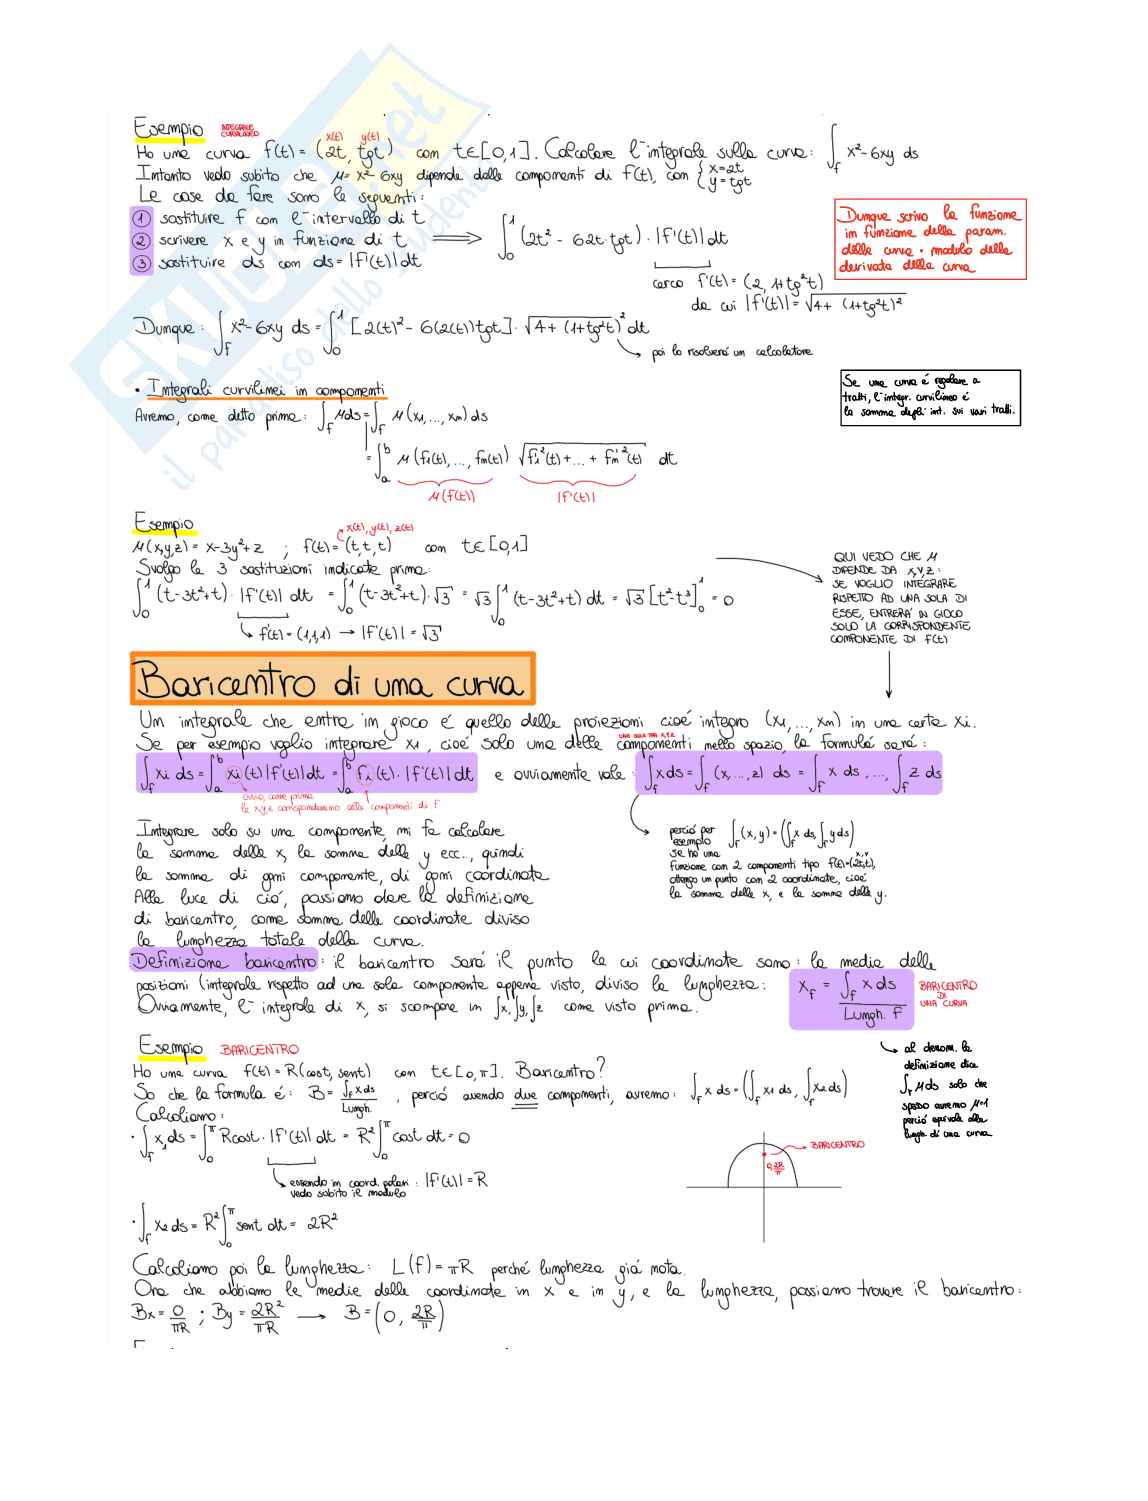 Esempio INTEGRALE CURVILINEO
x(t) y(t)
Ho una curva f(t) = (2t, tgt) con t∈[0,1]. Calcolare l'integrale sulla curva: ∫_f x²-6xy ds
Intanto vedo subito che μ= x²-6xy dipende dalle componenti di f(t), con { x=2t y=tgt
Le cose da fare sono le seguenti:
① sostituire f con l'intervallo di t
② scrivere x e y in funzione di t ⟹ ∫₀¹ (2t² - 62t tgt) · |f'(t)| dt
③ sostituire ds con ds = |f'(t)| dt
Dunque scrivo la funzione
in funzione della param.
della curva · modulo della
derivata della curva
cerco f'(t) = (2, 1+tg²t)
da cui |f'(t)| = √4+ (1+tg²t)²
Dunque: ∫_f x²-6xy ds = ∫₀¹ [2(t)² - 6(2(t))tgt] · √4+ (1+tg²t)² dt
poi lo risolverà un calcolatore
• Integrali curvilinei in componenti
Avremo, come detto prima: ∫_f μds = ∫_f μ(x1,...,xm) ds
= ∫_a^b μ(f1(t),..., fm(t)) √f1'²(t)+...+ fm'²(t) dt
μ(f(t)) |f'(t)|
Se una curva é regolare a
tratti, l'integr. curvilineo é
la somma degli int. sui vari tratti.
Esempio
x(t), y(t), z(t)
μ(x,y,z) = x-3y²+z ; f(t) = (t,t,t) con t∈[0,1]
Svolgo le 3 sostituzioni indicate prima:
∫₀¹ (t-3t²+t) · |f'(t)| dt = ∫₀¹ (t-3t²+t)·√3 = √3 ∫₀¹ (t-3t²+t) dt = √3 [t²-t³]₀¹ = 0
↳ f'(t) = (1,1,1) → |f'(t)| = √3
QUI VEDO CHE μ
DIPENDE DA X,Y,Z:
SE VOGLIO INTEGRARE
RISPETTO AD UNA SOLA DI
ESSE, ENTRERÀ IN GIOCO
SOLO LA CORRISPONDENTE
COMPONENTE DI f(t)
Baricentro di una curva
Un integrale che entra in gioco é quello delle proiezioni cioé integro (x1, ..., xm) in una certa xi.
UNA SOLA TRA X,Y,Z
Se per esempio voglio integrare x1, cioé solo una delle componenti nello spazio, la formula sará:
∫_f xi ds = ∫_a^b xi(t)|f'(t)|dt = ∫_a^b fi(t)·|f'(t)|dt e ovviamente vale: ∫_f x ds = ∫_f (x,...,z) ds = ∫_f x ds ,..., ∫_f z ds
ovvio, come prima
le x,y,z corrisponderanno alle componenti di f
perció per esempio ∫_f (x,y) = (∫_f x ds, ∫_f y ds)
se ho una
funzione con 2 componenti tipo f(t)=(2t,t),
ottengo un punto con 2 coordinate, cioé
la somma delle x, e la somma delle y.
Integrare solo su una componente, mi fa calcolare
la somma delle x, la somma delle y ecc.., quindi
la somma di ogni componente, di ogni coordinata
Alla luce di ció, possiamo dare la definizione
di baricentro, come somma delle coordinate diviso
la lunghezza totale della curva.
Definizione baricentro: il baricentro sará il punto le cui coordinate sono: la media delle
posizioni (integrale rispetto ad una sola componente appena visto, diviso la lunghezza:
Ovviamente, l'integrale di x, si scompone in ∫x, ∫y, ∫z come visto prima.
x_f = ∫_f x ds / Lungh. f
BARICENTRO
DI
UNA CURVA
Esempio BARICENTRO
Ho una curva f(t) = R(cost, sent) con t∈[0,π]. Baricentro?
So che la formula é: B = ∫_f x ds / Lungh. , perció avendo due componenti, avremo: ∫_f x ds = (∫_f x1 ds, ∫_f x2 ds)
al denom. la
definizione dice
∫_f μ ds solo che
spesso avremo μ=1
perció equivale alla
lungh. di una curva
Calcoliamo:
· ∫_f x1 ds = ∫₀^π Rcost · |f'(t)| dt = R² ∫₀^π cost dt = 0
essendo in coord. polari : |f'(t)| = R
vedo subito il modulo
BARICENTRO
0, 2R/π
· ∫_f x2 ds = R² ∫₀^π sent dt = 2R²
Calcoliamo poi la lunghezza: L(f) = πR perché lunghezza giá nota.
Ora che abbiamo le medie delle coordinate in x e in y, e la lunghezza, possiamo trovare il baricentro:
Bx = 0/πR ; By = 2R²/πR → B = (0, 2R/π)